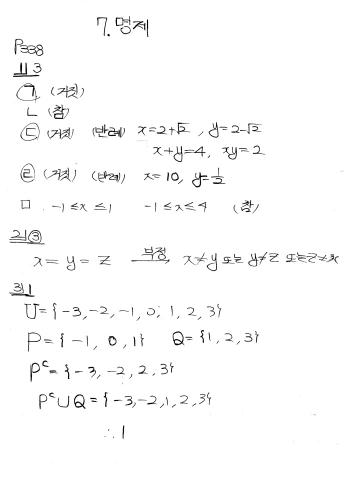 7. 명제
P338
1) 3
ㄱ (거짓)
ㄴ (참)
ㄷ (거짓) (반례) x=2+√2 , y=2-√2
x+y=4, xy=2
ㄹ (거짓) (반례) x=10, y=1/2
ㅁ. -1≤x≤1 -1≤x≤4 (참)
2) ③
x=y=z 부정→ x≠y 또는 y≠z 또는 z≠x
3) 1
U={-3,-2,-1,0,1,2,3}
P={-1,0,1} Q={1,2,3}
Pᶜ={-3,-2,2,3}
Pᶜ∪Q={-3,-2,1,2,3}
∴1